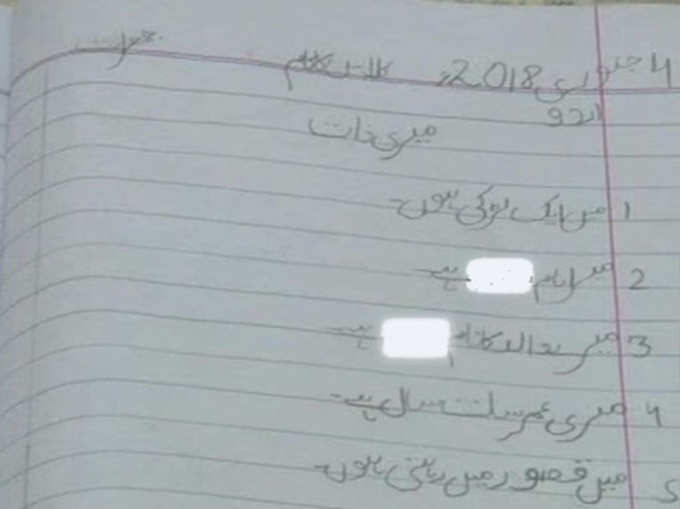 4 جنوری 2018ء کلاس کا کام جمعرات
اردو
میری ذات
1 میں ایک لڑکی ہوں۔
2 میرا نام ہے
3 میرے والد کا نام ہے
4 میری عمر سات سال ہے۔
5 میں قصور میں رہتی ہوں۔